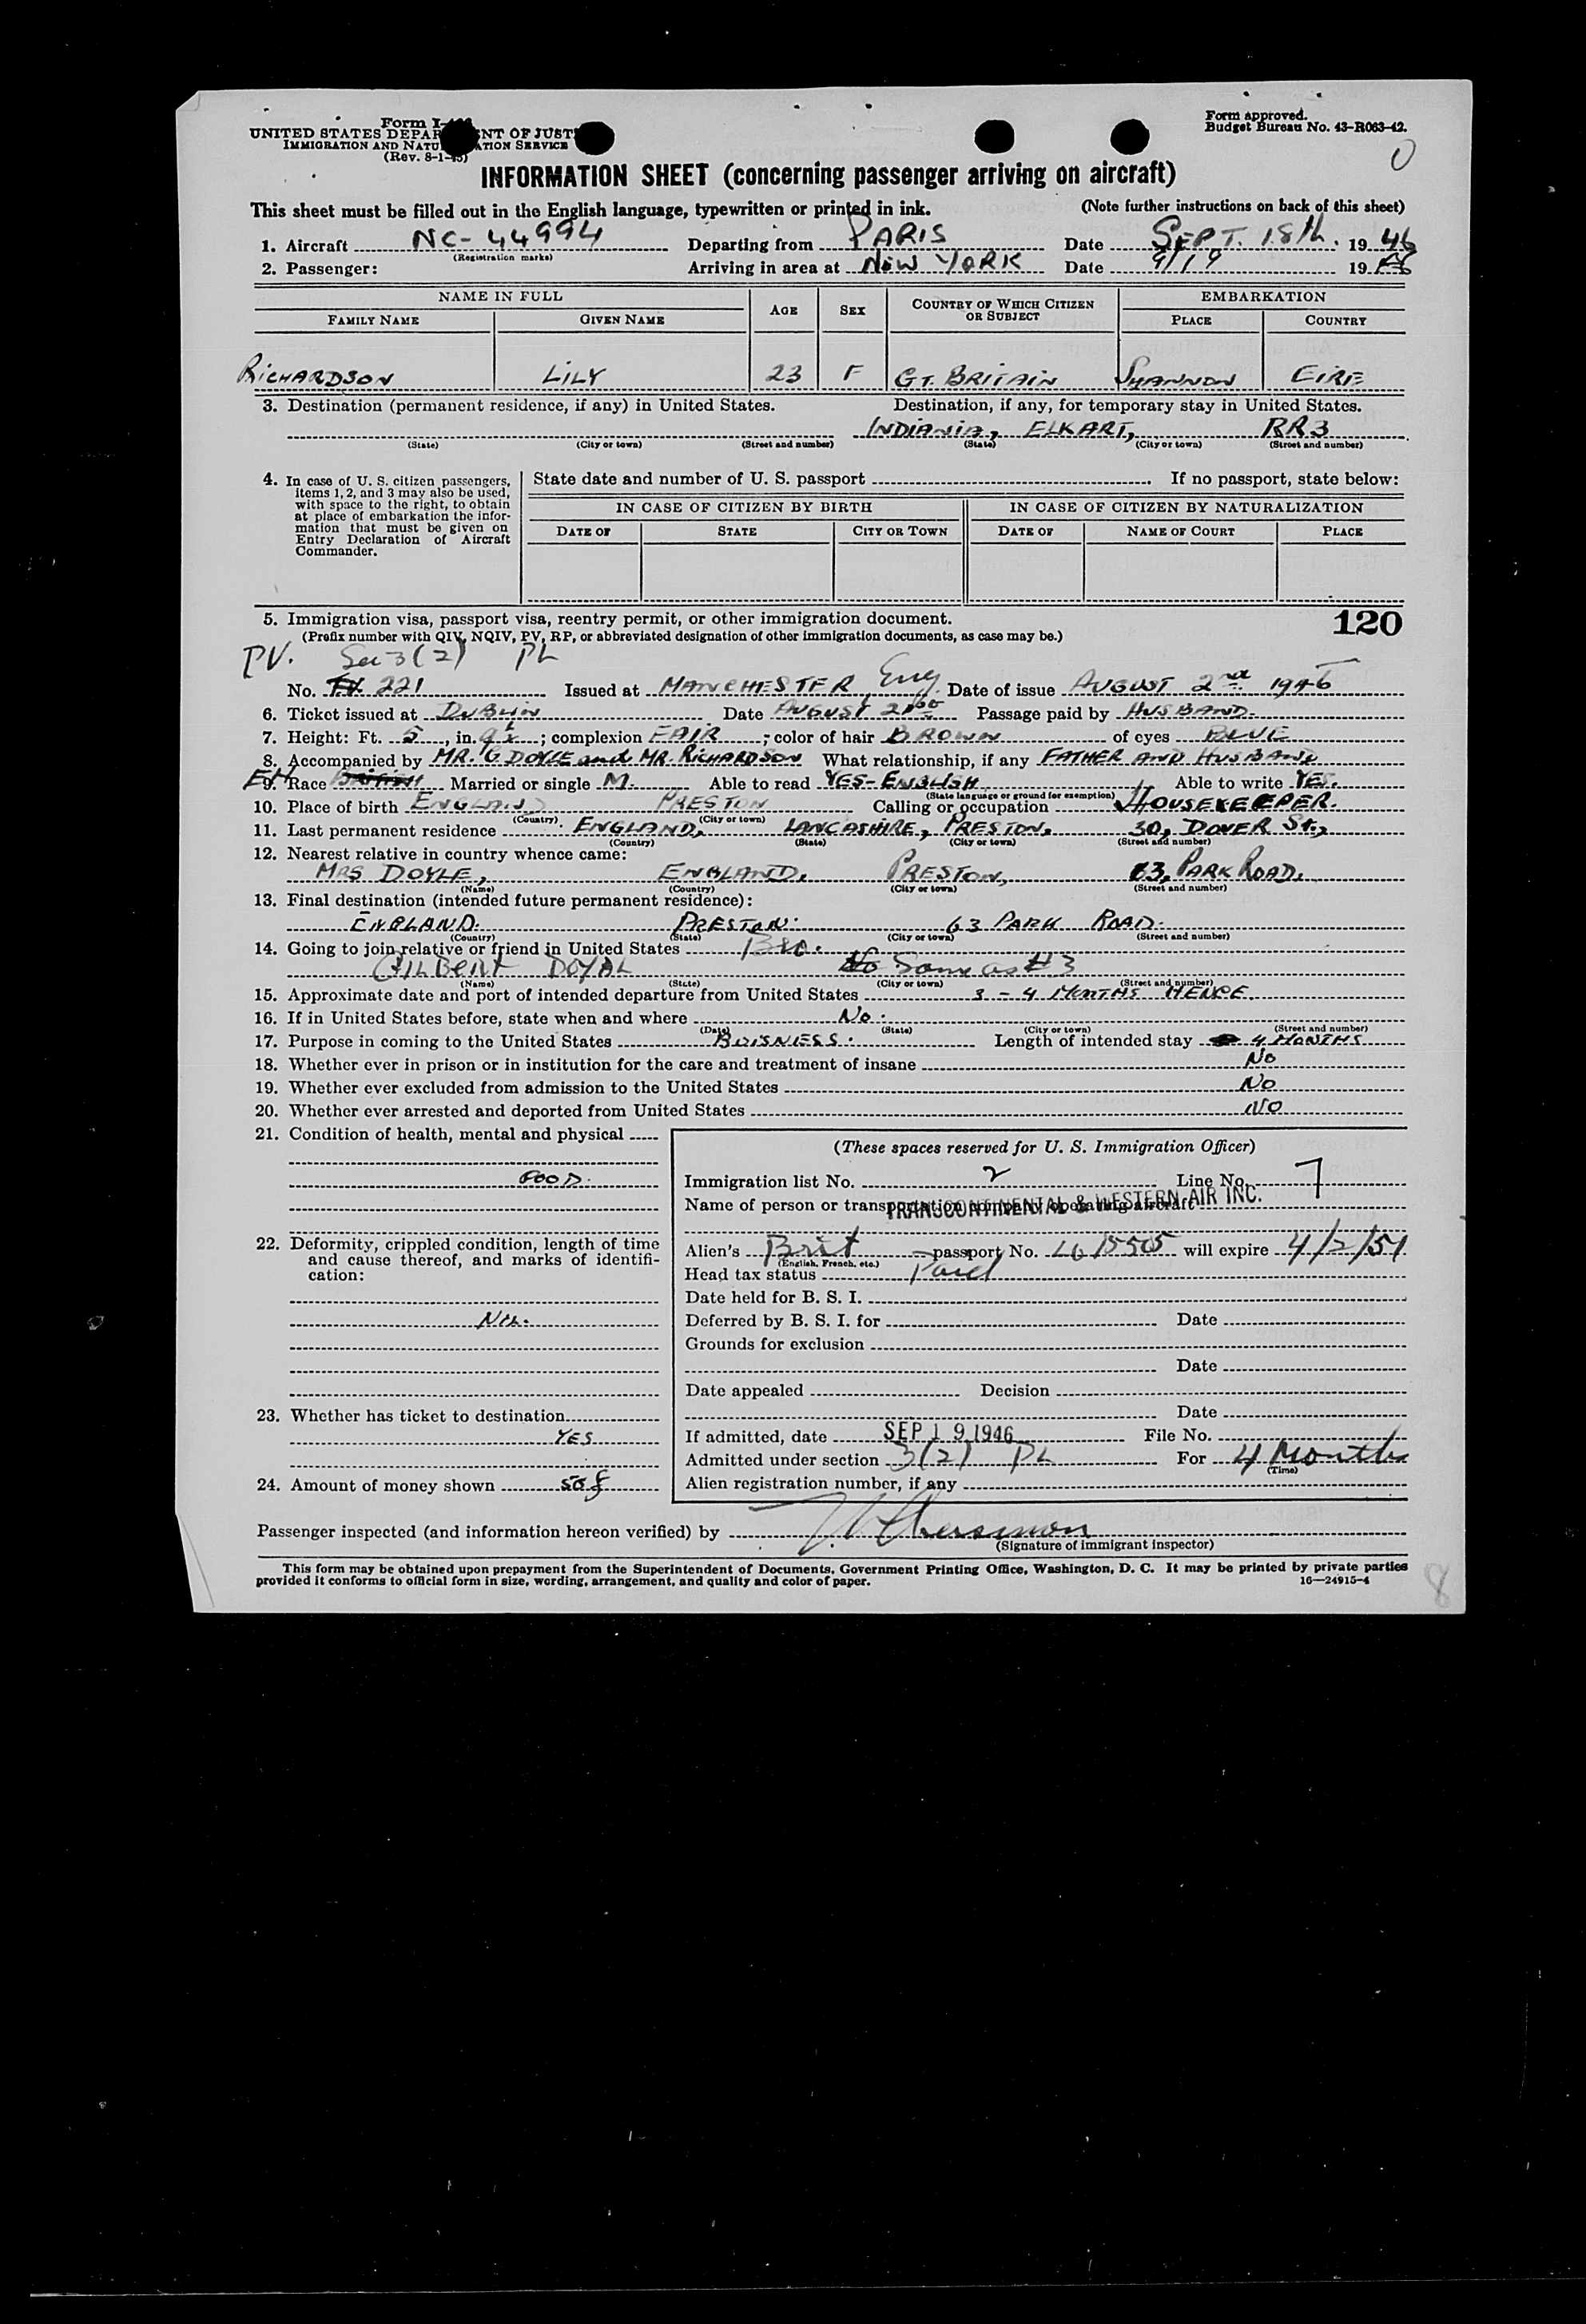 Form I-
UNITED STATES DEPAR NT OF JUST
IMMIGRATION AND NATU ATION SERVICE
(Rev. 8-1-45)
Form approved.
Budget Bureau No. 43-R063-42.
INFORMATION SHEET (concerning passenger arriving on aircraft)
This sheet must be filled out in the English language, typewritten or printed in ink. (Note further instructions on back of this sheet)
1. Aircraft NC-44994 Departing from PARIS Date SEPT. 18th. 19 46
(Registration marks)
2. Passenger: Arriving in area at NEW YORK Date 9/19 19 46
NAME IN FULL AGE SEX COUNTRY OF WHICH CITIZEN OR SUBJECT EMBARKATION
FAMILY NAME GIVEN NAME PLACE COUNTRY
RICHARDSON LILY 23 F GT. BRITAIN SHANNON EIRE
3. Destination (permanent residence, if any) in United States. Destination, if any, for temporary stay in United States.
INDIANIA, ELKART, RR3
(State) (City or town) (Street and number) (State) (City or town) (Street and number)
4. In case of U. S. citizen passengers, items 1, 2, and 3 may also be used, with space to the right, to obtain at place of embarkation the information that must be given on Entry Declaration of Aircraft Commander.
State date and number of U. S. passport If no passport, state below:
IN CASE OF CITIZEN BY BIRTH IN CASE OF CITIZEN BY NATURALIZATION
DATE OF STATE CITY OR TOWN DATE OF NAME OF COURT PLACE
5. Immigration visa, passport visa, reentry permit, or other immigration document. 120
(Prefix number with QIV, NQIV, PV, RP, or abbreviated designation of other immigration documents, as case may be.)
PV. Sec 3(2) PL
No. 221 Issued at MANCHESTER Eng. Date of issue AUGUST 2nd 1946
6. Ticket issued at DUBLIN Date AUGUST Passage paid by HUSBAND.
7. Height: Ft. 5, in. ; complexion FAIR ; color of hair BROWN of eyes BLUE
8. Accompanied by MR. G DOYLE and MR. RICHARDSON What relationship, if any FATHER AND HUSBAND
9. Race Married or single M. Able to read YES-ENGLISH Able to write YES.
(State language or ground for exemption)
10. Place of birth ENGLAND PRESTON Calling or occupation HOUSEKEEPER.
(Country) (City or town)
11. Last permanent residence ENGLAND, LANCASHIRE, PRESTON, 30, DOVER St.,
(Country) (State) (City or town) (Street and number)
12. Nearest relative in country whence came:
MRS DOYLE, ENGLAND, PRESTON, 63, PARK ROAD.
(Name) (Country) (City or town) (Street and number)
13. Final destination (intended future permanent residence):
ENGLAND. PRESTON. 63 PARK ROAD.
(Country) (State) (City or town) (Street and number)
14. Going to join relative or friend in United States Bro.
GILBERT DOYAL Same as #3
(Name) (State) (City or town) (Street and number)
15. Approximate date and port of intended departure from United States 3-4 MONTHS HENCE.
16. If in United States before, state when and where No.
(Date) (State) (City or town) (Street and number)
17. Purpose in coming to the United States BUISNESS. Length of intended stay 4 MONTHS
18. Whether ever in prison or in institution for the care and treatment of insane No
19. Whether ever excluded from admission to the United States No
20. Whether ever arrested and deported from United States NO
21. Condition of health, mental and physical
GOOD.
22. Deformity, crippled condition, length of time and cause thereof, and marks of identification:
NIL.
23. Whether has ticket to destination
YES
24. Amount of money shown 50 £
(These spaces reserved for U. S. Immigration Officer)
Immigration list No. 2 Line No. 7
Name of person or transportation company operating aircraft
TRANSCONTINENTAL & WESTERN AIR INC.
Alien's Brit passport No. LG15505 will expire 4/2/51
(English, French, etc.)
Head tax status Paid
Date held for B. S. I.
Deferred by B. S. I. for Date
Grounds for exclusion
Date
Date appealed Decision
Date
If admitted, date SEP 19 1946 File No.
Admitted under section 3(2) PL For 4 Months
(Time)
Alien registration number, if any
Passenger inspected (and information hereon verified) by
(Signature of immigrant inspector)
This form may be obtained upon prepayment from the Superintendent of Documents, Government Printing Office, Washington, D. C. It may be printed by private parties
provided it conforms to official form in size, wording, arrangement, and quality and color of paper. 16—24915-4
8